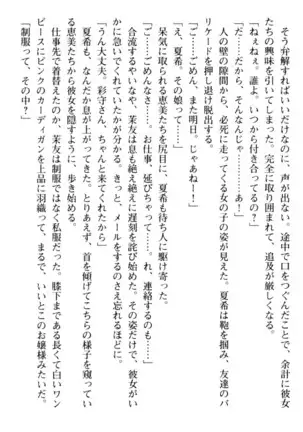 そう弁解すればいいだけなのに、声が出ない。途中で口をつぐんだことで、余計に彼女
たちの興味を引いてしまった。完全に取り囲まれて、追及が厳しくなる。
「ねぇねぇ。誰よ。いつから付き合ってるの?」
「だ……だから、そんなんじゃ……あ!」
人の壁の隙間から、必死に走ってくる女の子の姿が見えた。夏希は鞄を掴み、友達のバ
リケードを押し退け脱出する。
「ご……ごめんね、また明日。じゃあねー!」
「え、夏希、その娘って……」
呆気に取られる恵美たちを尻目に、夏希も待ち人に駆け寄った。
「ご……ごめんなさ……お仕事、延びちゃって……。れ、連絡するのも……」
合流するやいなや、茉友は息も絶え絶えに遅刻を詫び始めた。その姿だけで、彼女がい
かに急いでくれていたかが分かる。きっと、メールをするのさえ忘れるほどに。
「うん大丈夫。彩守さん、ちゃんと来てくれたから」
夏希も、なんだか息が上がってきた。とりあえず、首を傾げてこちらの様子を窺ってい
る恵美たちから彼女を隠すように、歩き始める。
仕事先で着替えたのか、茉友は制服ではなく私服だった。膝下まである長くて白いワン
ピースにピンクのカーディガンを上品に羽織って、まるで、いいとこのお嬢様みたいだ。
「制服って、その中?」